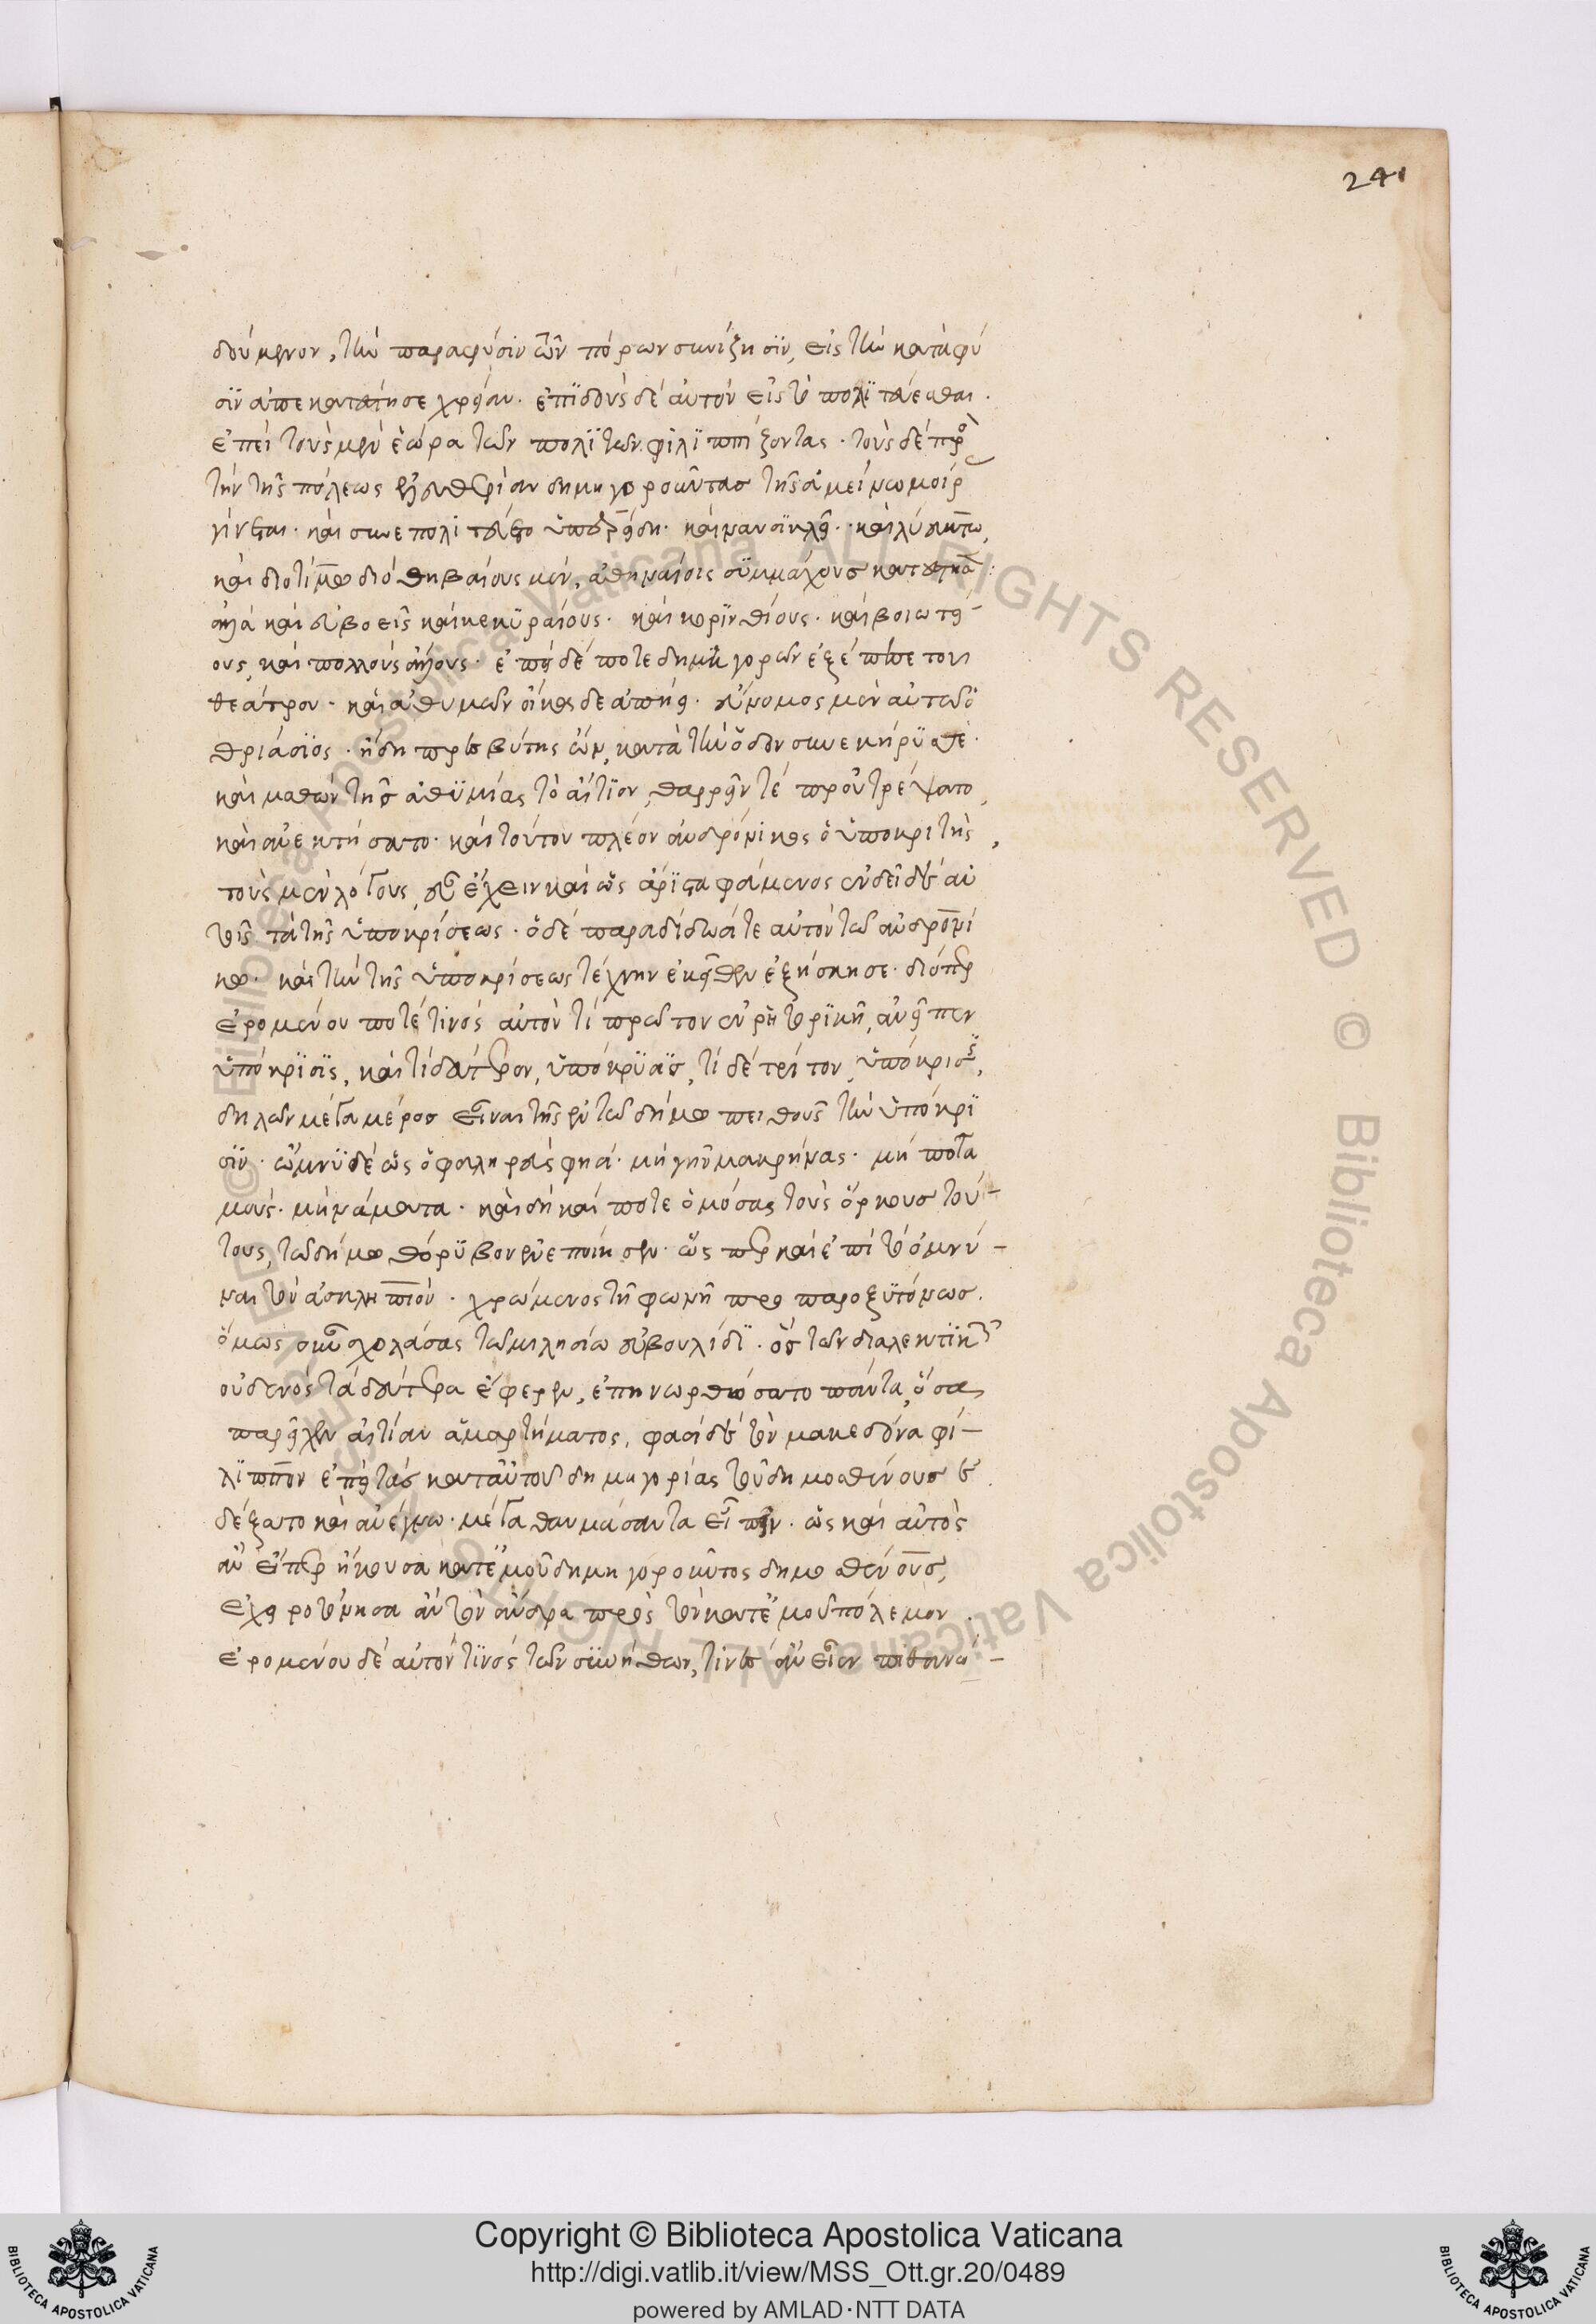 241
δούμενον, τὴν παραφύσιν τῶν πόρων συνίζησιν, εἰς τὴν κατὰ φύ
σιν ἀποκατέστησε χρείαν. ἐπιδοὺς δὲ αὐτὸν εἰς τὸ πολιτεύεσθαι.
ἐπεὶ τοὺς μὲν ἑώρα τῶν πολιτῶν φιλιππίζοντας. τοὺς δὲ πρὸς
τὴν τῆς πόλεως ἐλευθερίαν δημηγοροῦντας τῆς ἀμείνω μοίρ
γίνεται. καὶ συνεπολιτεύετο ὑπερείδη. καὶ ναυσικλεῖ. καὶ λυκούργω,
καὶ διοτίμω διὸ θηβαίους μὲν, ἀθηναίοις συμμάχους
ἀλλὰ καὶ εὐβοεῖς καὶ κερκυραίους. καὶ κορινθίους. καὶ βοιωτεί-
ους, καὶ πολλοὺς ἄλλους. ἐπεὶ δέ ποτε δημηγορῶν ἐξέπιπτε τοῦ
θεάτρου. καὶ ἀθυμῶν οἴκαδε ἀπήει. εὔνομος μὲν αὐτῶ ὁ
θριάσιος. ἤδη πρεσβύτης ὤν, κατὰ τὴν ὁδὸν
καὶ μαθὼν τῆς ἀθυμίας τὸ αἴτιον, θαρρεῖν τέ προὐτρέψατο,
καὶ ἀνεκτήσατο. καὶ τούτου πλέον ἀνδρόνικος ὁ ὑποκριτὴς,
τοὺς μὲν λόγους, εὖ ἔχειν καὶ ὡς ἄριστα φάμενος ἐνδεῖσθαι αὐ
τοῖς τὰ τῆς ὑποκρίσεως. ὁ δὲ παραδίδωσί τε αὐτὸν τῶ ἀνδρονί
κω. καὶ τὴν τῆς ὑποκρίσεως τέχνην ἐκεῖθεν ἐξήσκησε. διόπερ
ἐρομένου ποτέ τινός αὐτὸν τί πρῶτον ἐν ῥητορικῆ, ἀνεῖπεν
ὑπόκρισις, καὶ τί δεύτερον, ὑπόκρισις, τί δὲ τρίτον, ὑπόκρισις,
δηλῶν μέγα μέρος εἶναι τῆς ἐν τῶ δήμω πειθοῦς τὴν ὑπόκρι
σιν. ὤμνυ δὲ ὡς ὁ φαληρεύς φησί. μὴ γῆν μὴ κρήνας. μὴ ποτα
μούς. μὴ νάματα. καὶ δὴ καί ποτε ὀμόσας τοὺς ὅρκους τού-
τους, τῶ δήμω θόρυβον ἐνεποίησεν. ὥς περ καὶ ἐπὶ τὸ ὀμνύ-
ναι τὸν ἀσκληπιόν. χρώμενος τῆ φωνῆ προπαροξυτόνως.
ὅμως συσχολάσας τῶ μιλησίω εὐβουλίδη. ὃς τῶν διαλεκτικῶν
οὐδενὸς τὰ δεύτερα ἔφερεν, ἐπηνωρθώσατο πάντα, ὅσα
παρεῖχεν αἰτίαν ἁμαρτήματος, φασὶ δὲ τὸν μακεδόνα φί-
λιππον ἐπεὶ τὰς κατ' αὐτοῦ δημηγορίας τοῦ δημοσθένους ἐ
δέξατο καὶ ἀνέγνω. μέγα θαυμάσαντα εἰπεῖν. ὡς καὶ αὐτὸς
ἂν εἴπερ ἤκουσα κατ' ἐμοῦ δημηγοροῦντος δημοσθένους,
ἐχειροτόνησα ἂν τὸν ἄνδρα πρὸς τὸν κατ' ἐμοῦ πόλεμον.
ἐρομένου δὲ αὐτὸν τινός τῶν συνήθων, τίνες ἂν εἶεν πιθανώ-
Copyright © Biblioteca Apostolica Vaticana
http://digi.vatlib.it/view/MSS_Ott.gr.20/0489
powered by AMLAD·NTT DATA